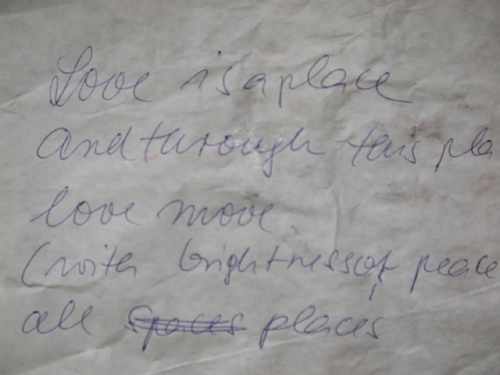 Love is a place
and through this pla
love move
(with brightness of peace
all spaces places